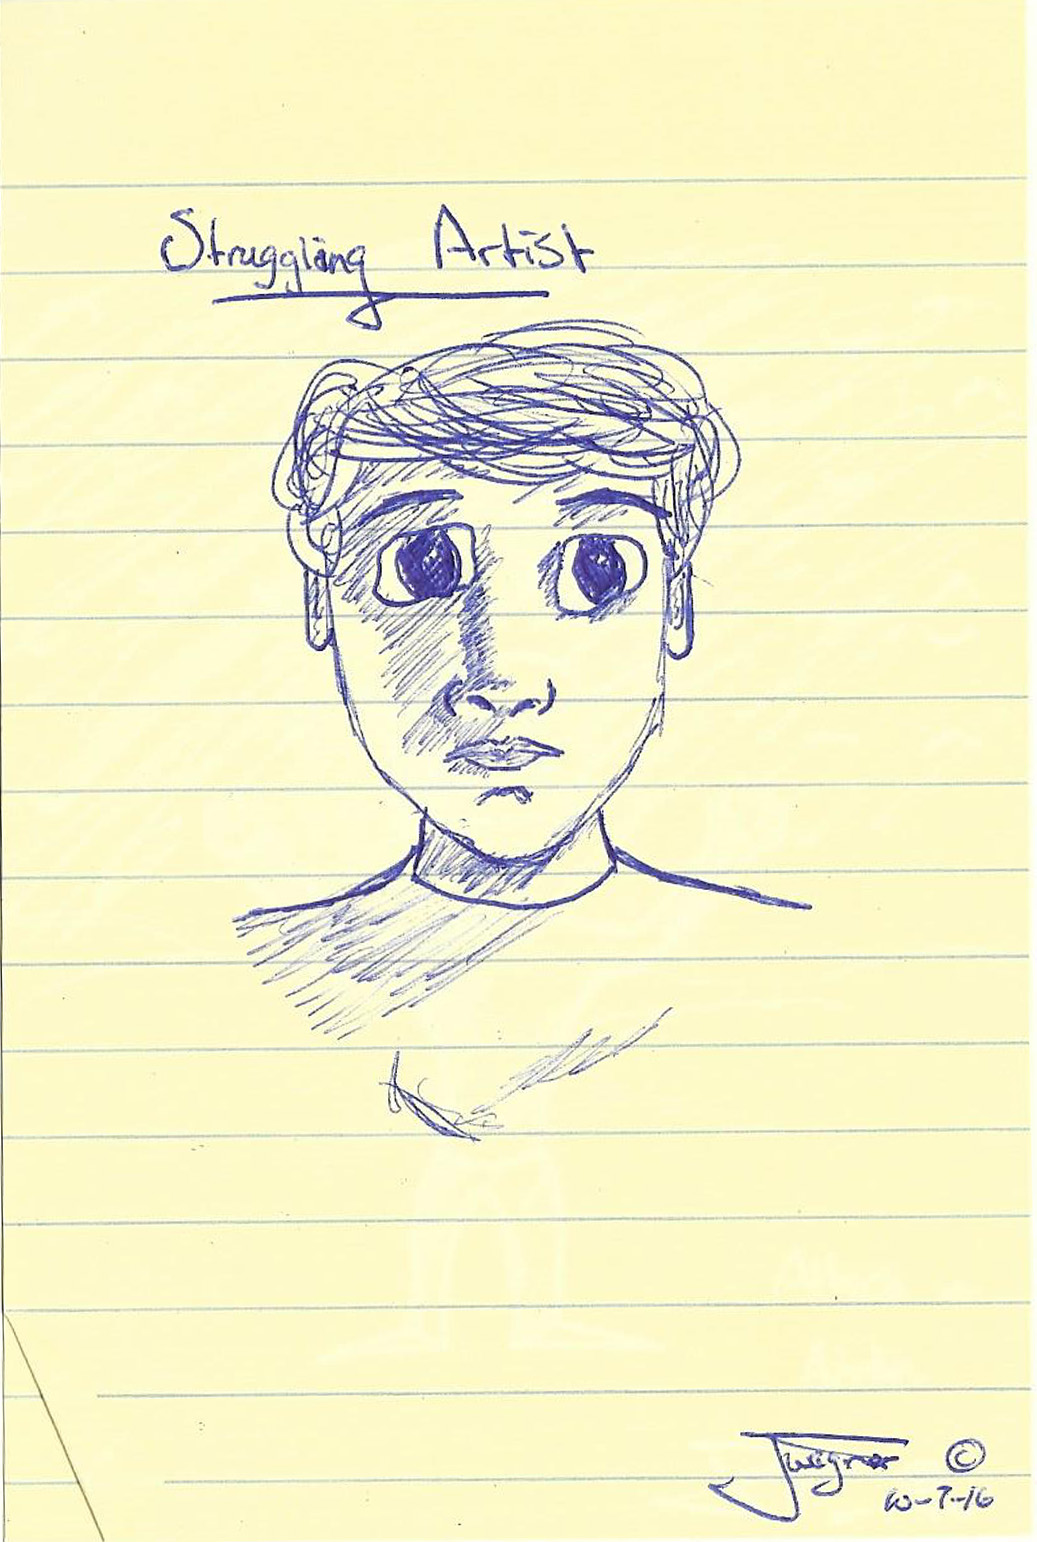 Struggling Artist
JWegner ©
10-7-16